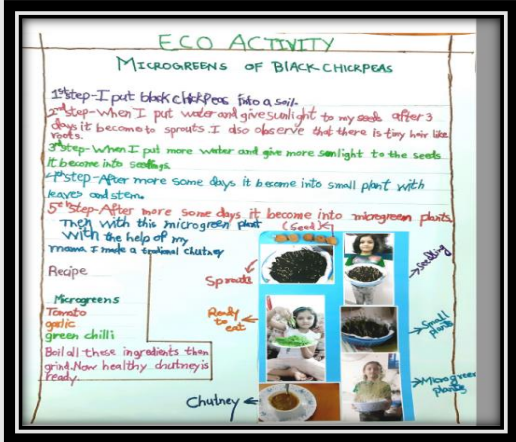 ECO ACTIVITY
MICROGREENS OF BLACK CHICKPEAS
1st step-I put black chickpeas into a soil.
2nd step-When I put water and give sunlight to my seeds after 3
days it become to sprouts. I also observe that there is tiny hair like
roots.
3rd step-When I put more water and give more sunlight to the seeds
it become into seedlings.
4th step-After more some days it become into small plant with
leaves and stem.
5th step-After more some days it become into microgreen plants.
Then with this microgreen plant
with the help of my
mama I made a traditional chutney
(Seed)
Recipe
Sprouts
Seedling
Microgreens
Tomato
garlic
green chilli
Ready
to
eat
Small
plants
Boil all these ingredients then
grind. Now healthy chutney is
ready.
Microgreen
plants
Chutney